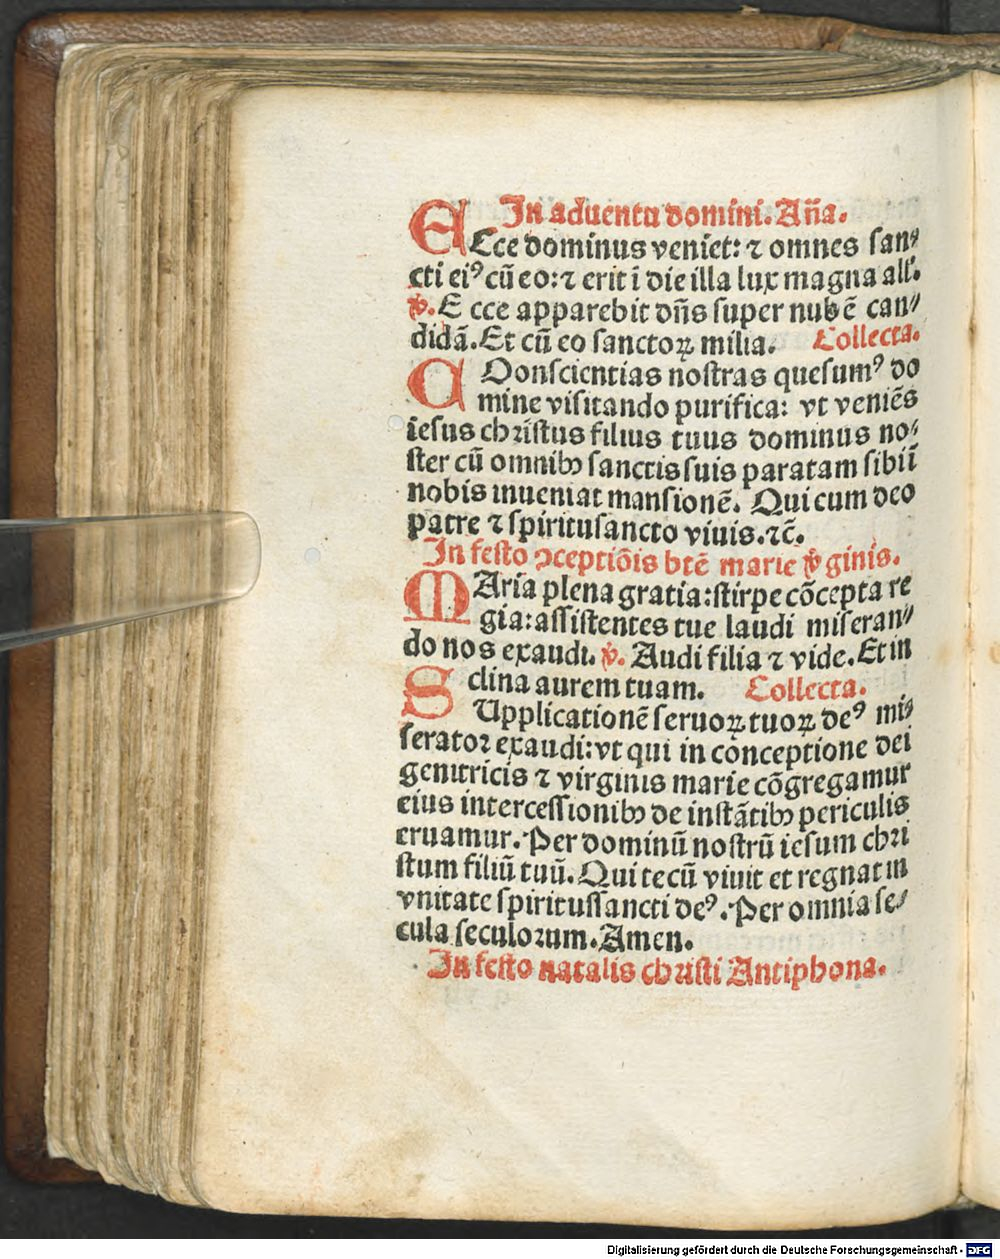 In aduentu domini. Aña.
ECce dominus veniet: ⁊ omnes san⸗
cti eiꝰ cū eo: ⁊ erit ī die illa lux magna all'.
℣. Ecce apparebit dñs super nubē can⸗
didā. Et cū eo sanctoꝝ milia. Collecta.
COonscientias nostras quesumꝰ do
mine visitando purifica: vt veniēs
iesus christus filius tuus dominus no⸗
ster cū omnibꝰ sanctis suis paratam sibi ī
nobis inueniat mansionē. Qui cum deo
patre ⁊ spiritusancto viuis. ⁊c̄.
In festo ↄceptiōis btē marie v̓ginis.
MAria plena gratia: stirpe cōcepta re
gia: assistentes tue laudi miseran⸗
do nos exaudi. ℣. Audi filia ⁊ vide. Et in
clina aurem tuam. Collecta.
SUpplicationē seruoꝝ tuoꝝ deꝰ mi⸗
serator exaudi: vt qui in conceptione dei
genitricis ⁊ virginis marie cōgregamur
eius intercessionibꝰ de instātibꝰ periculis
eruamur. Per dominū nostrū iesum chri
stum filiū tuū. Qui tecū viuit et regnat in
vnitate spiritussancti deꝰ. Per omnia se⸗
cula seculorum. Amen.
In festo natalis christi Antiphona.
Digitalisierung gefördert durch die Deutsche Forschungsgemeinschaft - DFG